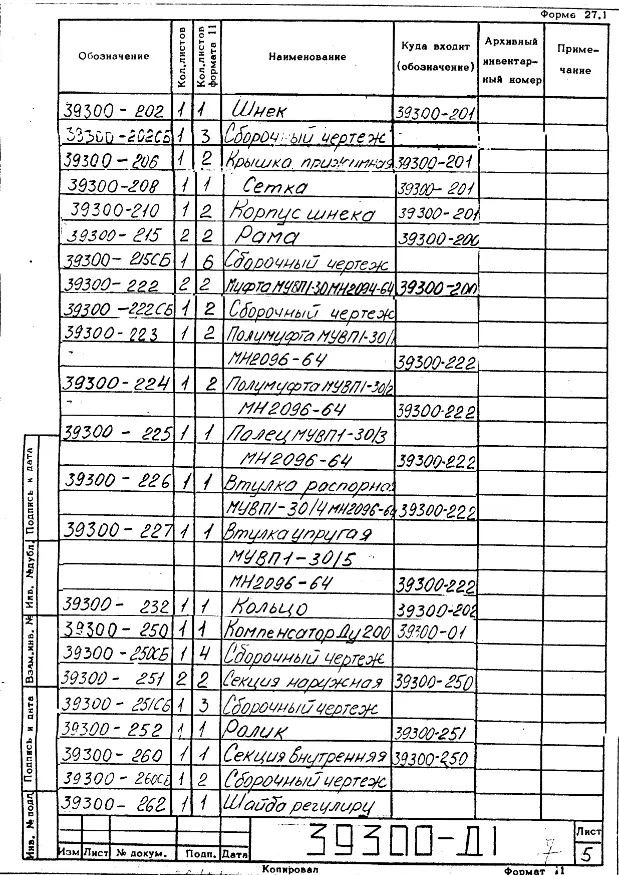 Форма 27.1
Обозначение Кол.листов Кол.листов формата 11 Наименование Куда входит (обозначение) Архивный инвентар-ный номер Приме-чание
39300-202 1 1 Шнек 39300-201
39300-202СБ 1 3 Сборочный чертеж
39300-206 1 2 Крышка прижимная 39300-201
39300-208 1 1 Сетка 39300-201
39300-210 1 2 Корпус шнека 39300-201
39300-215 2 2 Рама 39300-200
39300-215СБ 1 6 Сборочный чертеж
39300-222 2 2 Муфта МУВП1-30 МН2094-64 39300-200
39300-222СБ 1 2 Сборочный чертеж
39300-223 1 2 Полумуфта МУВП1-30/1
МН2096-64 39300-222
39300-224 1 2 Полумуфта МУВП1-30/2
МН2096-64 39300-222
39300-225 1 1 Палец МУВП1-30/3
МН2096-64 39300-222
39300-226 1 1 Втулка распорная
МУВП1-30/4 МН2096-64 39300-222
39300-227 1 1 Втулка упругая
МУВП1-30/5
МН2096-64 39300-222
39300-232 1 1 Кольцо 39300-202
39300-250 1 1 Компенсатор Ду200 39300-01
39300-250СБ 1 4 Сборочный чертеж
39300-251 2 2 Секция наружная 39300-250
39300-251СБ 1 3 Сборочный чертеж
39300-252 1 1 Ролик 39300-251
39300-260 1 1 Секция внутренняя 39300-250
39300-260СБ 1 2 Сборочный чертеж
39300-262 1 1 Шайба регулиру
Инв. № подл. Подпись и дата Взам.инв. № Инв. №дубл. Подпись и дата
39300-Д1 7
Лист
5
Изм Лист № докум. Подп. Дата
Копировал Формат 11